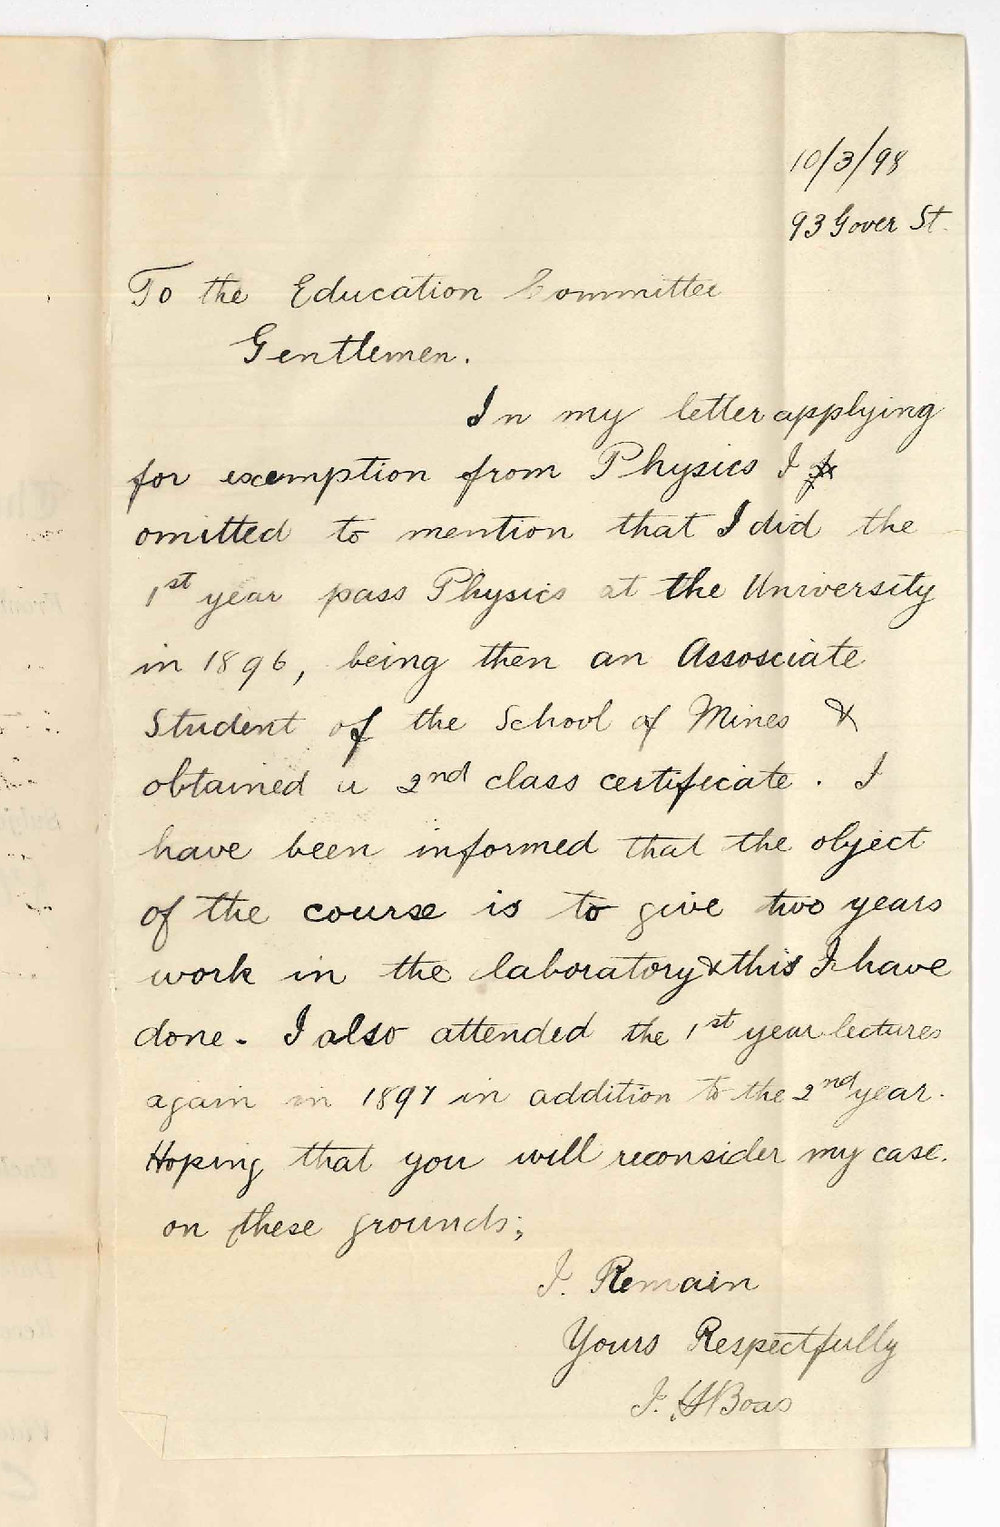 10/3/98
93 Gover St.
To the Education Committee
Gentlemen.
In my letter applying
for exemption from Physics I
omitted to mention that I did the
1st year pass Physics at the University
in 1896, being then an Assosciate
Student of the School of Mines &
obtained a 2nd class certificate. I
have been informed that the object
of the course is to give two years
work in the laboratory & this I have
done. I also attended the 1st year lectures
again in 1897 in addition to the 2nd year.
Hoping that you will reconsider my case.
on these grounds;
I. Remain
Yours Respectfully
I. H Boas